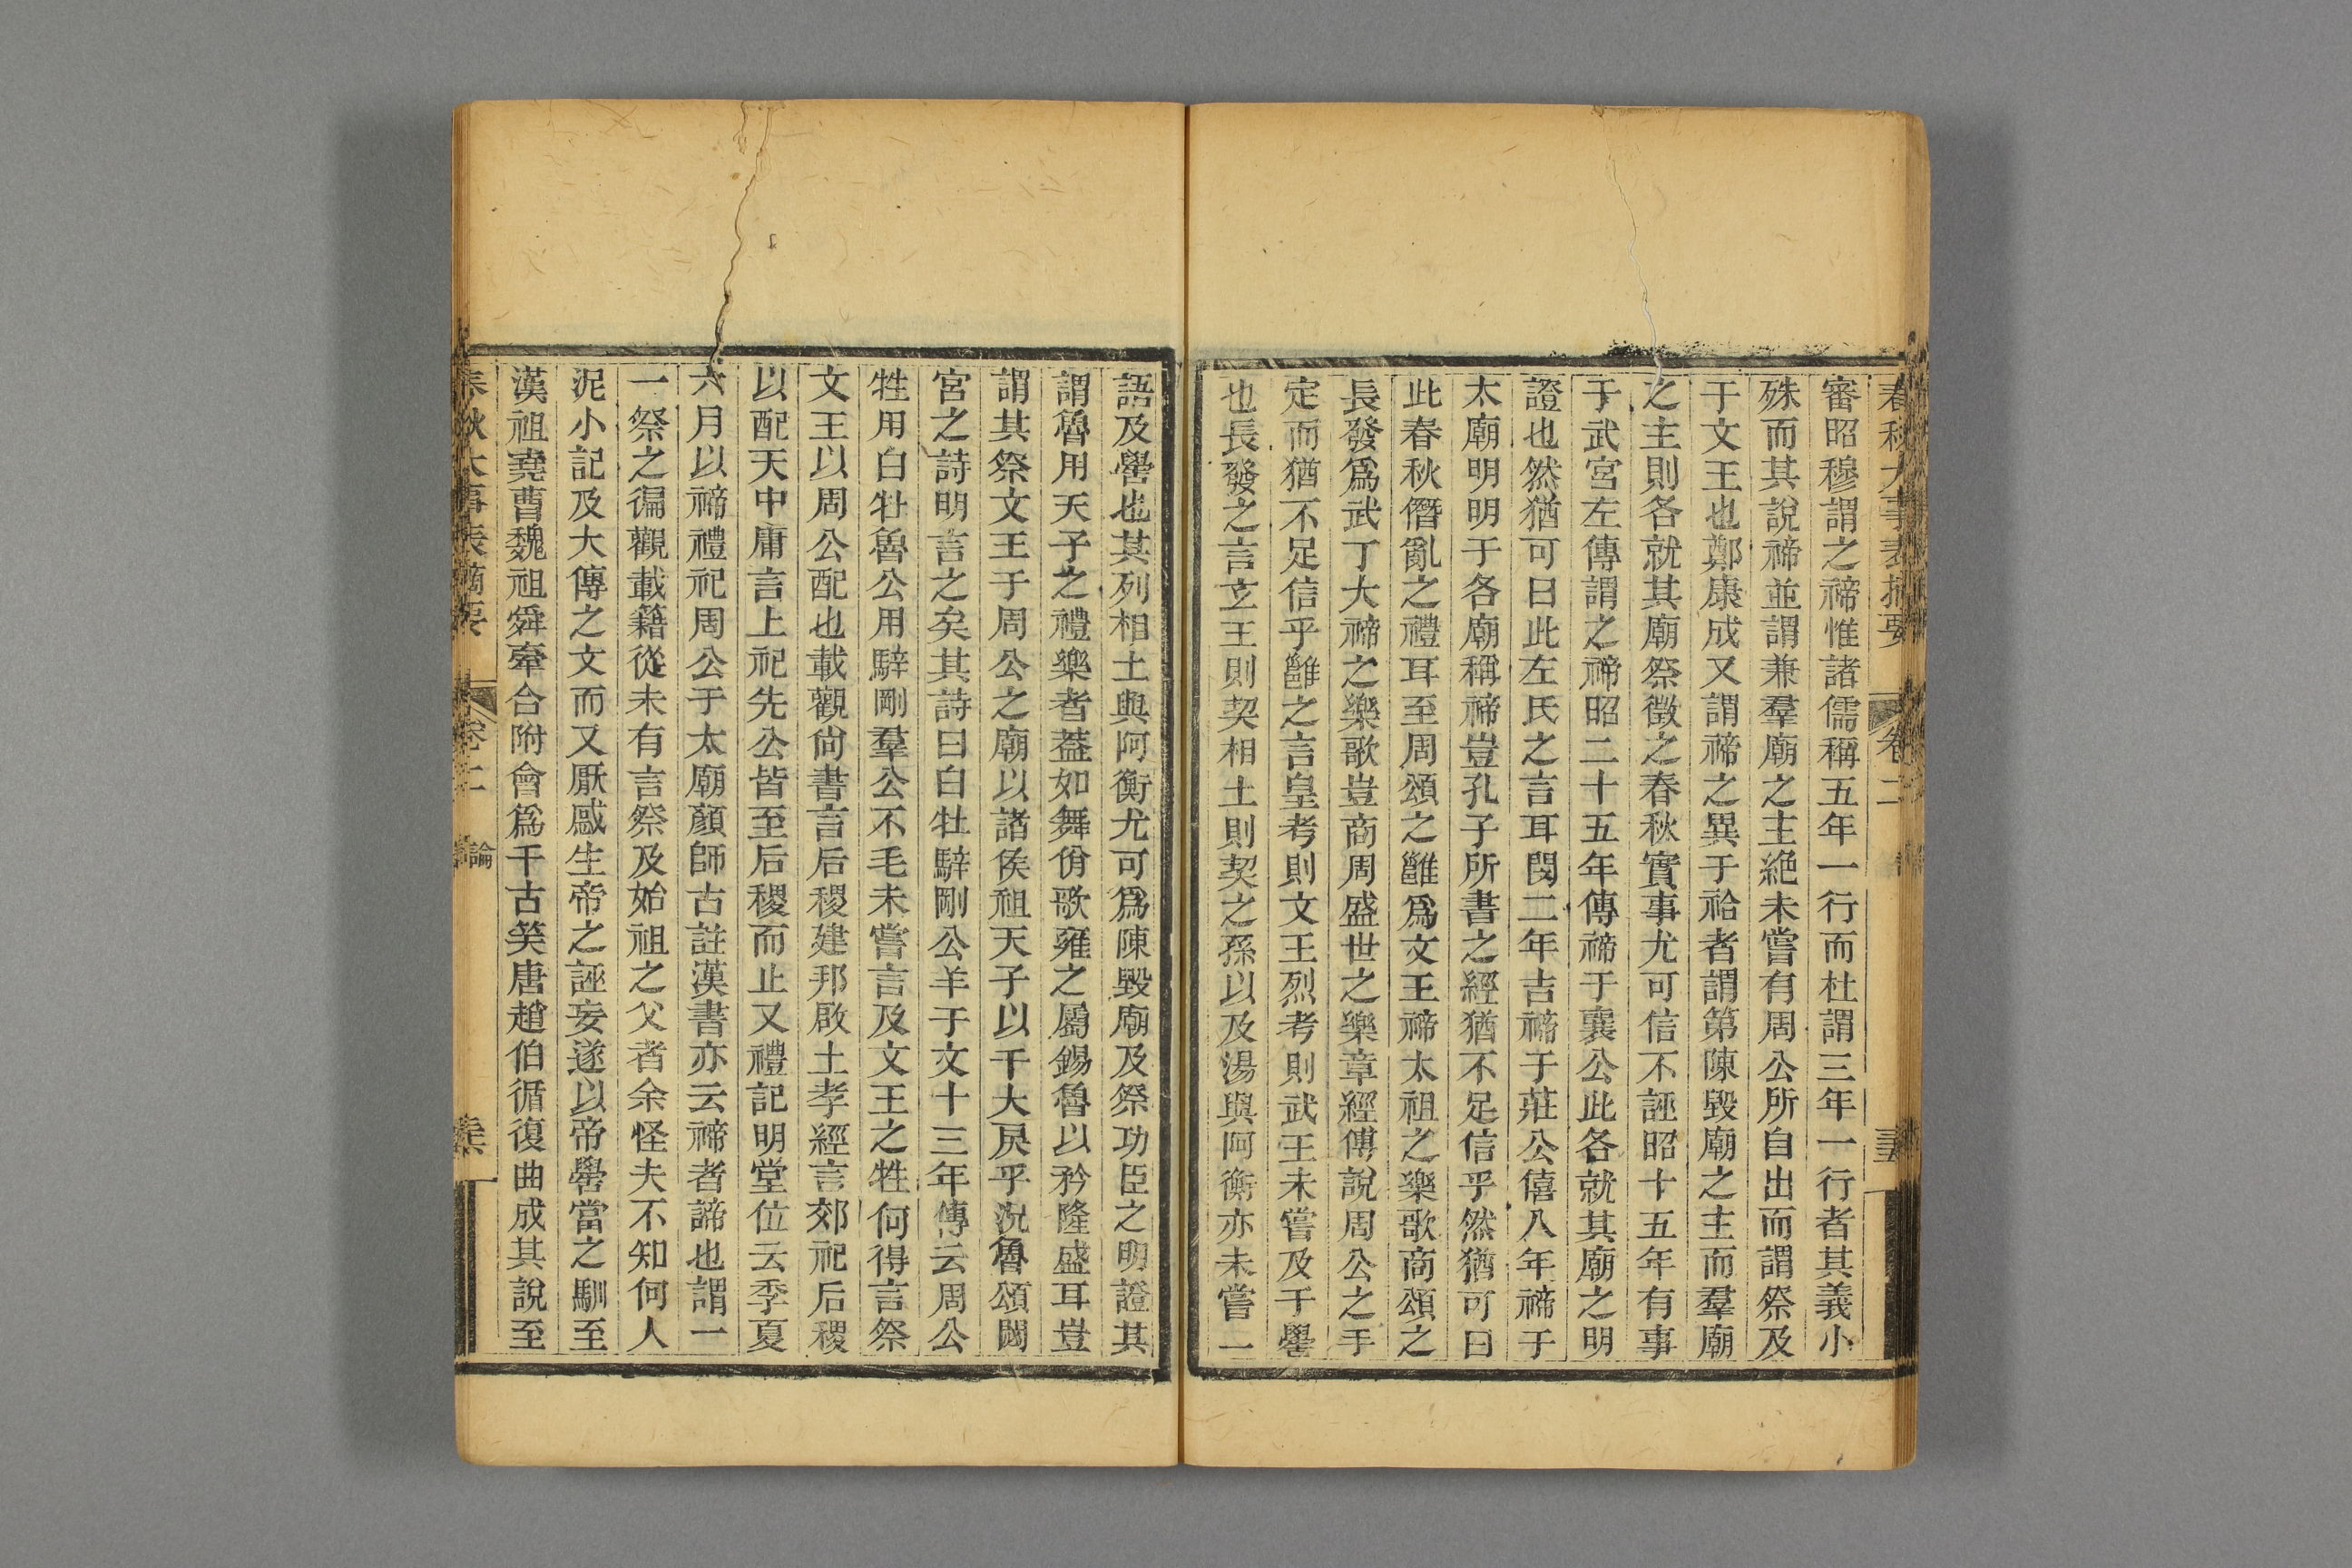 春秋大事表摘要 卷二
審昭穆謂之禘惟諸儒稱五年一行而杜謂三年一行者其義小
殊而其說禘並謂兼羣廟之主絶未嘗有周公所自出而謂祭及
于文王也鄭康成又謂禘之異于祫者謂第陳毀廟之主而羣廟
之主則各就其廟祭徵之春秋實事尤可信不誣昭十五年有事
于武宮左傳謂之禘昭二十五年傳禘于襄公此各就其廟之明
證也然猶可曰此左氏之言耳閔二年吉禘于莊公僖八年禘于
太廟明明于各廟稱禘豈孔子所書之經猶不足信乎然猶可曰
此春秋僭亂之禮耳至周頌之雝爲文王禘太祖之樂歌商頌之
長發爲武丁大禘之樂歌豈商周盛世之樂章經傳說周公之手
定而猶不足信乎雝之言皇考則文王烈考則武王未嘗及于嚳
也長發之言玄王則契相土則契之孫以及湯與阿衡亦未嘗一
語及嚳也其列相土與阿衡尤可爲陳毀廟及祭功臣之明證其
謂魯用天子之禮樂者葢如舞佾歌雍之屬錫魯以矜隆盛耳豈
謂其祭文王于周公之廟以諸侯祖天子以干大戾乎況魯頌閟
宮之詩明言之矣其詩曰白牡騂剛公羊于文十三年傳云周公
牲用白牡魯公用騂剛羣公不毛未嘗言及文王之牲何得言祭
文王以周公配也載觀尙書言后稷建邦啟土孝經言郊祀后稷
以配天中庸言上祀先公皆至后稷而止又禮記明堂位云季夏
六月以禘禮祀周公于太廟顏師古註漢書亦云禘者諦也謂一
一祭之徧觀載籍從未有言祭及始祖之父者余怪夫不知何人
泥小記及大傳之文而又厭感生帝之誣妄遂以帝嚳當之馴至
漢祖堯曹魏祖舜牽合附會爲千古笑唐趙伯循復曲成其說至
春秋大事表摘要 卷二 論